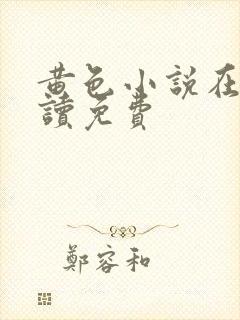 黄色小說在
讀免費
鄭容和